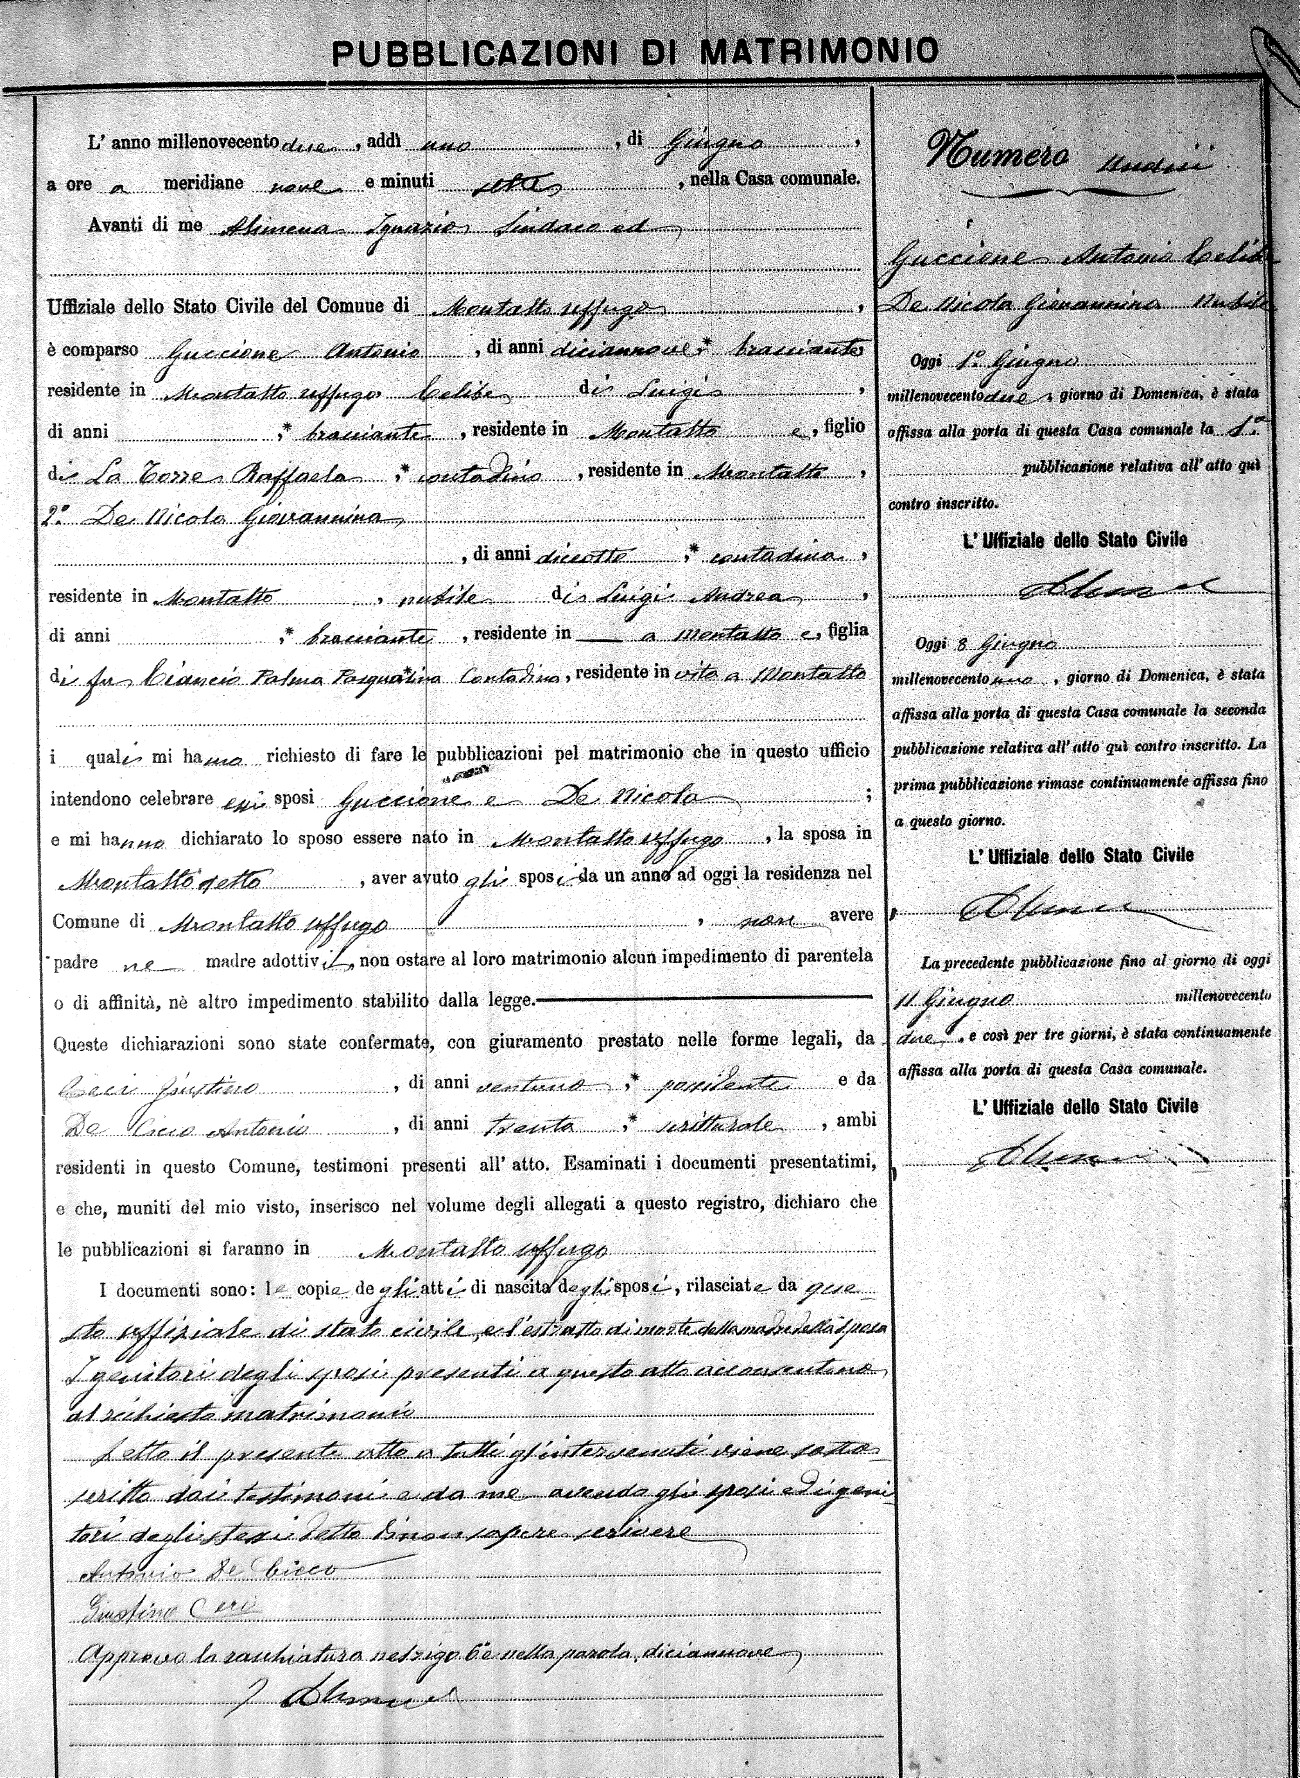 PUBBLICAZIONI DI MATRIMONIO
L' anno millenovecento due, addì uno, di Giugno,
a ore a meridiane nove e minuti sette, nella Casa comunale.
Avanti di me Alimena Ignazio Sindaco ed
Uffiziale dello Stato Civile del Comune di Montalto Uffugo,
è comparso Guccione Antonio, di anni diciannove,* bracciante
residente in Montalto Uffugo Celibe di Luigi,
di anni ,* bracciante, residente in Montalto e, figlio
di La Torre Raffaela ,* contadina, residente in Montalto,
2.° De Nicola Giovannina
, di anni diciotto ,* contadina,
residente in Montalto, nubile di Luigi Andrea,
di anni ,* bracciante, residente in — a Montalto e, figlia
di fu Ciancio Palma Pasqualina * Contadina, residente in vita a Montalto
i quali mi hanno richiesto di fare le pubblicazioni pel matrimonio che in questo ufficio
intendono celebrare essi sposi Guccione e De Nicola ;
e mi hanno dichiarato lo sposo essere nato in Montalto Uffugo, la sposa in
Montalto detto, aver avuto gli sposi da un anno ad oggi la residenza nel
Comune di Montalto Uffugo, non avere
padre ne madre adottivi, non ostare al loro matrimonio alcun impedimento di parentela
o di affinità, nè altro impedimento stabilito dalla legge.
Queste dichiarazioni sono state confermate, con giuramento prestato nelle forme legali, da
Ceci Giustino, di anni ventuno ,* possidente e da
De Cicco Antonio, di anni trenta ,* scritturale, ambi
residenti in questo Comune, testimoni presenti all' atto. Esaminati i documenti presentatimi,
e che, muniti del mio visto, inserisco nel volume degli allegati a questo registro, dichiaro che
le pubblicazioni si faranno in Montalto Uffugo
I documenti sono: le copie degli atti di nascita degli sposi, rilasciate da que-
sto uffiziale di stato civile, e l'estratto di morte della madre della sposa
I genitori degli sposi presenti a questo atto acconsentino
al richiesto matrimonio
Letto il presente atto a tutti gl'intervenuti viene sotto-
scritto dai testimoni e da me avendo gli sposi ed i geni-
tori degli stessi detto di non sapere scrivere
Antonio De Cicco
Giustino Ceci
Approvo la raschiatura nel rigo 6° nella parola, diciannove
Numero undici
Guccione Antonio Celibe
De Nicola Giovannina Nubile
Oggi 1° Giugno
millenovecento due, giorno di Domenica, è stata
affissa alla porta di questa Casa comunale la 1.ª
pubblicazione relativa all' atto quì
contro inscritto.
L' Uffiziale dello Stato Civile
Oggi 8 Giugno
millenovecento uno, giorno di Domenica, è stata
affissa alla porta di questa Casa comunale la seconda
pubblicazione relativa all' atto quì contro inscritto. La
prima pubblicazione rimase continuamente affissa fino
a questo giorno.
L' Uffiziale dello Stato Civile
La precedente pubblicazione fino al giorno di oggi
11 Giugno millenovecento
due, e così per tre giorni, è stata continuamente
affissa alla porta di questa Casa comunale.
L' Uffiziale dello Stato Civile